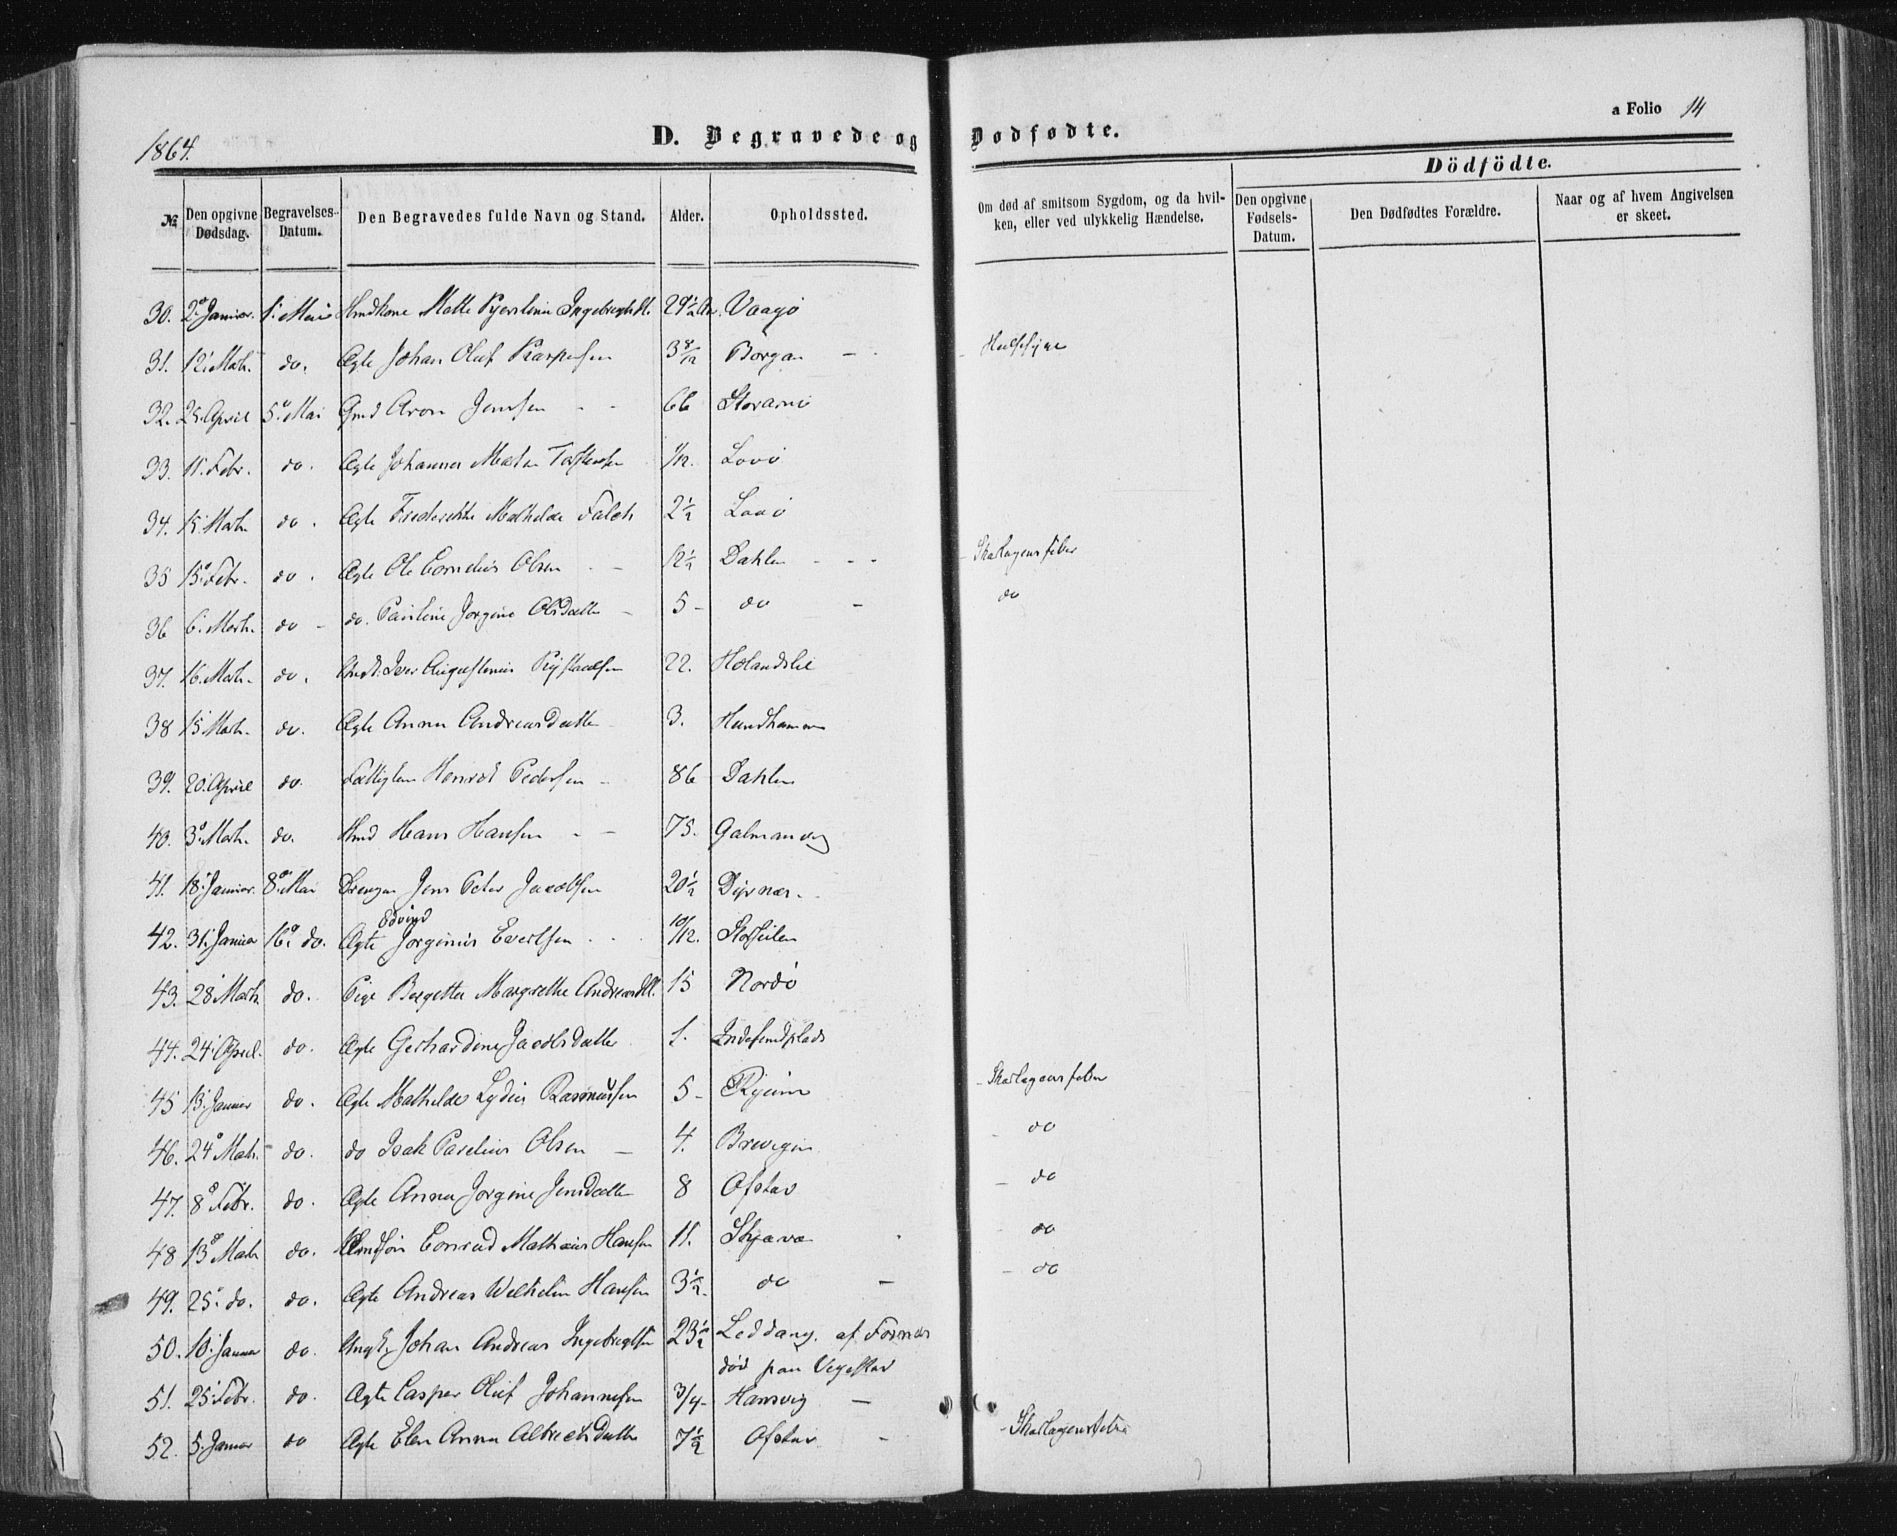 1864.
D. Begravede og Dødfødte.
a Folio 14
Dödfödte.
№
Den opgivne Dødsdag.
Begravelses-Datum.
Den Begravedes fulde Navn og Stand.
Alder.
Opholdssted.
Om død af smitsom Sygdom, og da hvilken, eller ved ulykkelig Hændelse.
Den opgivne Fødsels-Datum.
Den Dødfødtes Forældre.
Naar og af hvem Angivelsen er skeet.
30. 2. Januar. 1. Mai 29½ Vaagø
31. 12. Marts. do. Ægte Johan Oluf 3 8/12 Borgan
32. 25. April 5. Mai Gmd Aron Jensen 66
33. 11. Febr. do. Ægte Johannes 1/12. Lovø
34. 15. Marts. do. Ægte Frederikke Mathilde Falch 2½ Lovø
35 15. Febr. do. Ægte Ole Cornelius Olsen 12½ Dahlen Skarlagensfeber
36 6. Marts. do do. Pauline Jørgine Olsdatter 5 do do
37. 16. Marts. do. Iver Augustinius 22. Hølandslie
38 15 Marts. do. Ægte Anna Andreasdatter 3. Hundhammer
39. 20. April do. Fattiglem Pedersen 86 Dahlen
40. 3. Marts. do. Hmd Hans Hansen 75. Galmanvig
41. 18. Januar. 8. Mai Drengen Jens Peter Jacobsen 20½ Dyrnæs
42. 31. Januar 16. do. Ægte Edvind Jørginius Evertsen 10/12.
43. 28 Marts do. Pige Bergitte Margrethe Andreasdt. 15 Nordø
44. 24. April. do. Ægte Gerhardine Jacobsdatter 1.
45 13. Januar do. Ægte Mathilde Lydia Rasmussen 5 Skarlagensfeber
46. 24 Marts. do. do Isak Parelius Olsen 4. do
47. 8. Febr. do. Ægte Anna Jørgine Jensdatter 8 Ofstad do
48 13. Marts do. Conrad Mathias Hansen 11. Skjæva do
49. 25. do. do. Ægte Andreas Wilhelm Hansen 3½. do do
50. 10. Januar do. Ungk. Johan Andreas Ingebregtsen 23½ Leddang. af Fosnæs
død paa Vegestad
51. 25. Febr. do. Ægte Casper Oluf Johannesen 3/4 Hansvig
52. 5. Januar do Ægte Elen Anna Albrechtsdatter 7½ Ofstad Skarlagensfeber